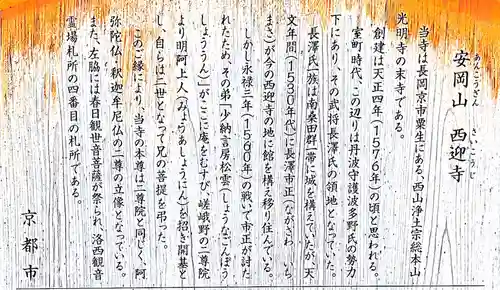 あんこうざん　さいこうじ
安岡山　西迎寺
当寺は長岡京市粟生にある、西山浄土宗総本山
光明寺の末寺である。
創建は天正四年（1576年）の頃と思われる。
室町時代、この辺りは丹波守護波多野氏の勢力
下にあり、その武将長澤氏の領地となっていた。
長澤氏一族は南桑田群一帯に城を構えていたが、天
文年間（1530年代）に長澤市正（ながさわ　いち
まさ）が今の西迎寺の地に館を構え移り住んでいる。
しかし永禄三年（1560年）の戦いで市正が討た
れたため、その弟「少納言房松雲（しょうなごんぼう
しょううん）」がここに庵をむすび、嵯峨野の二尊院
より明阿上人（みょうあしょうにん）を招き開基と
し、自らは二世となって兄の菩提を弔った。
このご縁により、当寺の本尊は二尊院と同じく、阿
弥陀仏・釈迦牟尼仏の二尊の立像となっている。
また、左脇には春日観世音菩薩が祭られ、洛西観音
霊場札所の四番目の札所である。
京都市